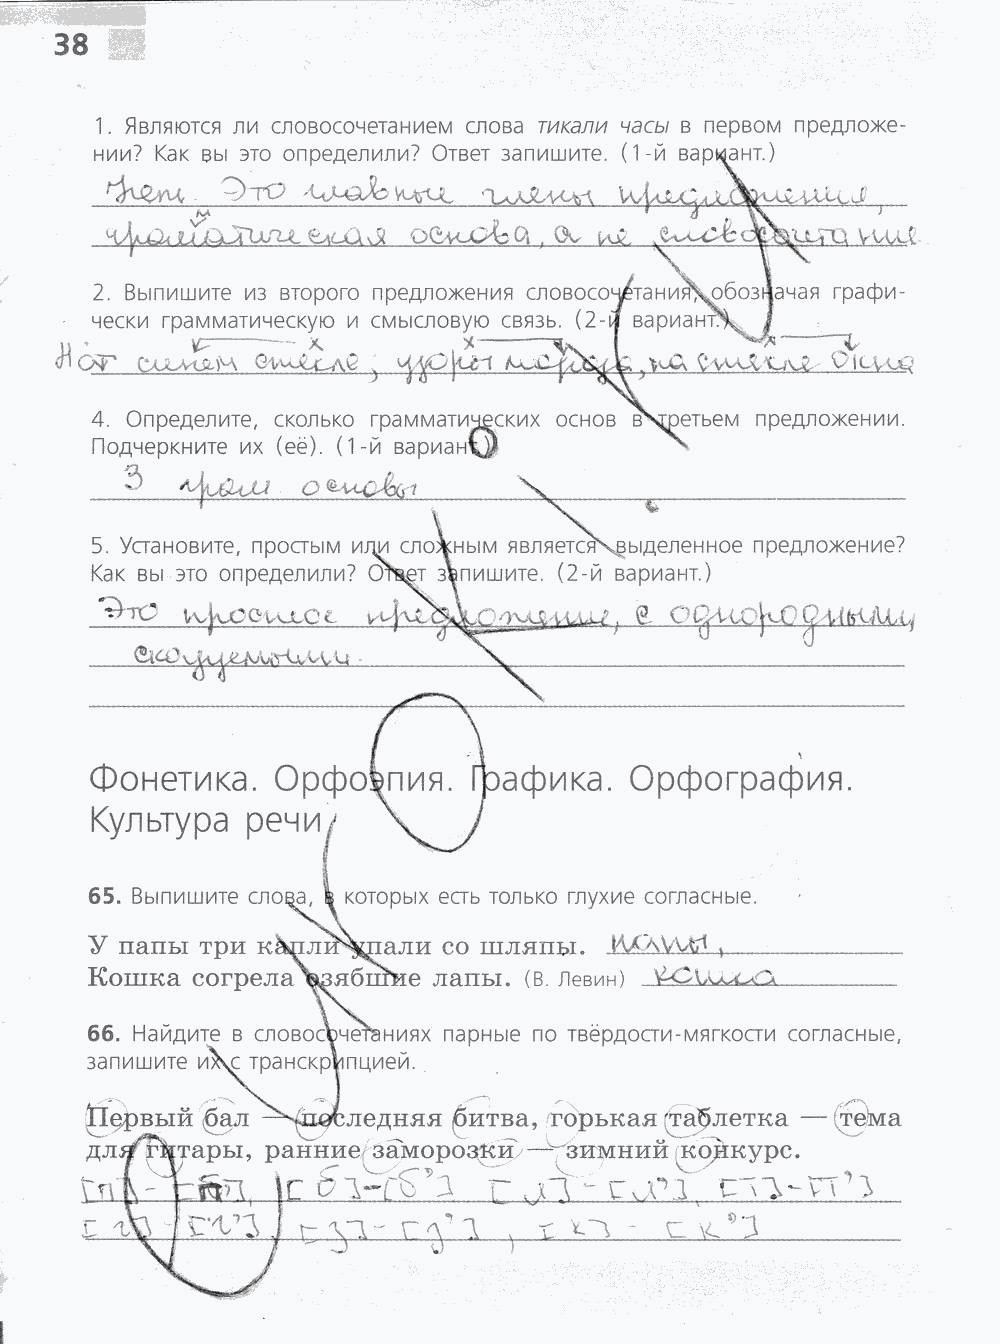 38
1. Являются ли словосочетанием слова тикали часы в первом предложе-
нии? Как вы это определили? Ответ запишите. (1-й вариант.)
Нет. Это главные члены предложения,
граматическая основа, а не словосочетание
2. Выпишите из второго предложения словосочетания, обозначая графи-
чески грамматическую и смысловую связь. (2-й вариант.)
синем стекле, узоры мороза, на стекле окна
4. Определите, сколько грамматических основ в третьем предложении.
Подчеркните их (её). (1-й вариант.)
3 грам основы
5. Установите, простым или сложным является выделенное предложение?
Как вы это определили? Ответ запишите. (2-й вариант.)
Это простое предложение, с однородными
сказуемыми.
Фонетика. Орфоэпия. Графика. Орфография.
Культура речи
65. Выпишите слова, в которых есть только глухие согласные.
У папы три капли упали со шляпы. папы,
Кошка согрела озябшие лапы. (В. Левин) кошка
66. Найдите в словосочетаниях парные по твёрдости-мягкости согласные,
запишите их с транскрипцией.
Первый бал — последняя битва, горькая таблетка — тема
для гитары, ранние заморозки — зимний конкурс.
[п] - [п'], [б] - [б'] [л] - [л'], [т] - [т']
[г] - [г'], [з] - [з'], [к] - [к']